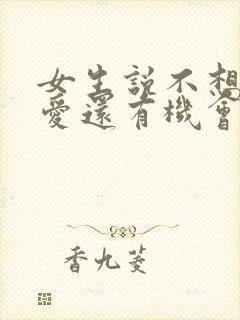 女生説不想
愛還有機會
香九菱